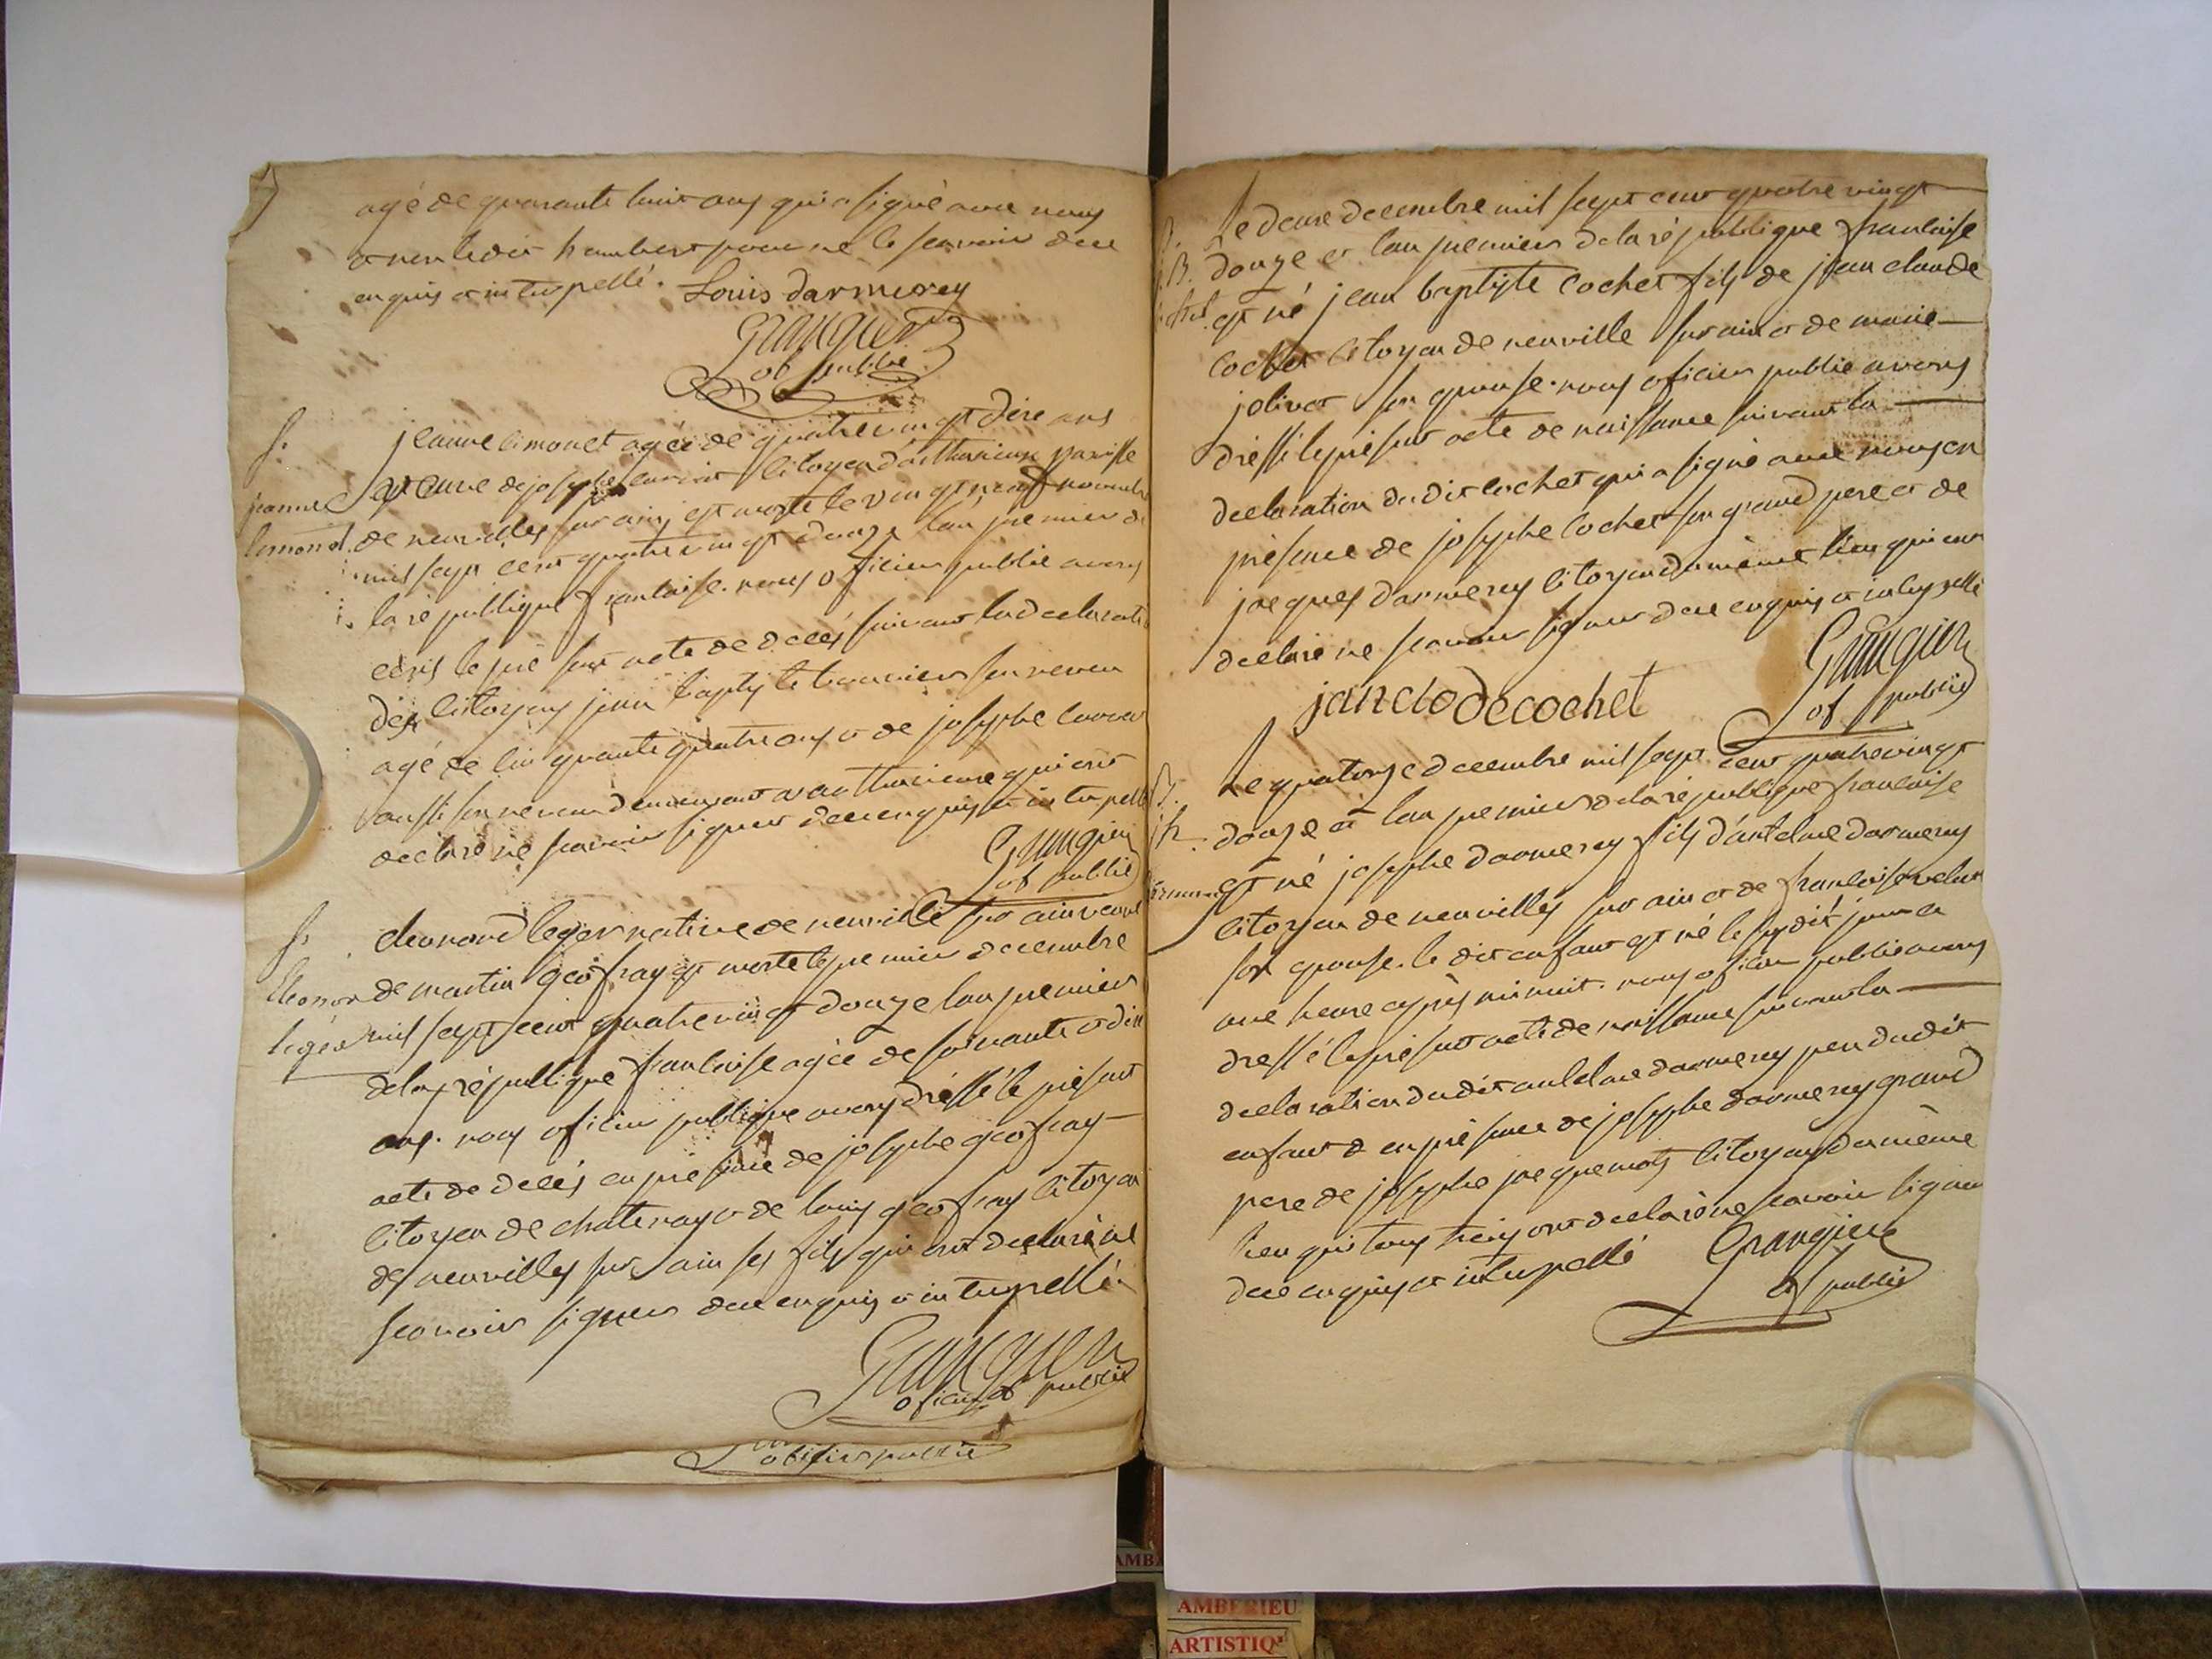 agé de quarante huit ans qui a signé avec nous
et non ledit humbert pour ne le scavoir de ce
enquis et interpellé. Louis darmerey
Grangier
of public
S. jeanne limonet agée de quatre vingt dix ans
jeanne veuve de josephe citoyen paroisse
limonet de neuvilles sur ain, est morte le vingt neuf novembre
mil sept cent quatre vingt douze l'an premier de
la république francaise. nous oficier public avons
ecris le présent acte de décès suivant la declarati
des citoyens jean baptiste son neveu
agé de cinquante quatre ans et de josephe
aussi son neveu demeurant a qui ont
declaré ne scavoir signer de ce enquis et interpellé
Grangier
of public
S. leonard leger native de neuville sur ain veuve
Eleonor de martin geofray est morte le premier decembre
leger mil sept cent quatre vingt douze l'an premier
de la république francaise agée de soixante et dix
ans. nous oficier publique avons dréssé le présent
acte de décès en présence de josephe geofray
citoyen de chatenay et de louis geofray citoyen
de neuvilles sur ain ses fils qui ont declaré ne
scavoir signer de ce enquis et interpellé.
Grangier
oficier public
oficier public
Le douze decembre mil sept cent quatre vingt
B. douze et l'an premier de la république francaise
est né jean baptiste cochet fils de jean claude
cochet citoyen de neuville sur ain et de marie
jolivet son epouse. nous oficier public avons
dressé le présent acte de naissance suivant la
declaration du dit cochet qui a signé avec nous en
présence de josephe cochet son grand pere et de
jacques darmerey citoyen du même lieu qui ont
declaré ne scavoir signer de ce enquis et interpellé
janclodecochet
Grangier
of public
B. Le quatorze decembre mil sept cent quatre vingt
jh. douze et l'an premier de la république francaise
est né josephe darmerey fils d'antelme darmerey
citoyen de neuvilles sur ain et de francoise
son epouse. le dit enfant est né le susdit jour a
une heure après minuit. nous oficier public avons
dressé le présent acte de naissance suivant la
declaration du dit antelme darmerey pere du dit
enfant et en présence de josephe darmerey grand
pere de josephe jacquemot citoyens du même
lieu qui tous trois ont declaré ne scavoir signer
de ce enquis et interpellé Grangier
of public
AMBERIEU
ARTISTIQ